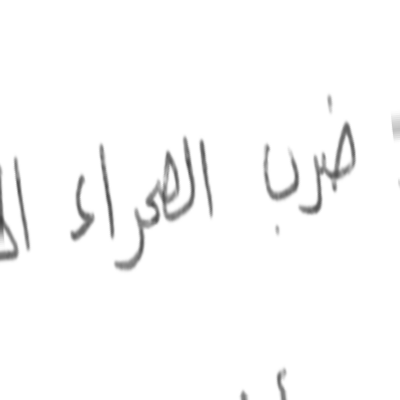 ضرب الصحراء